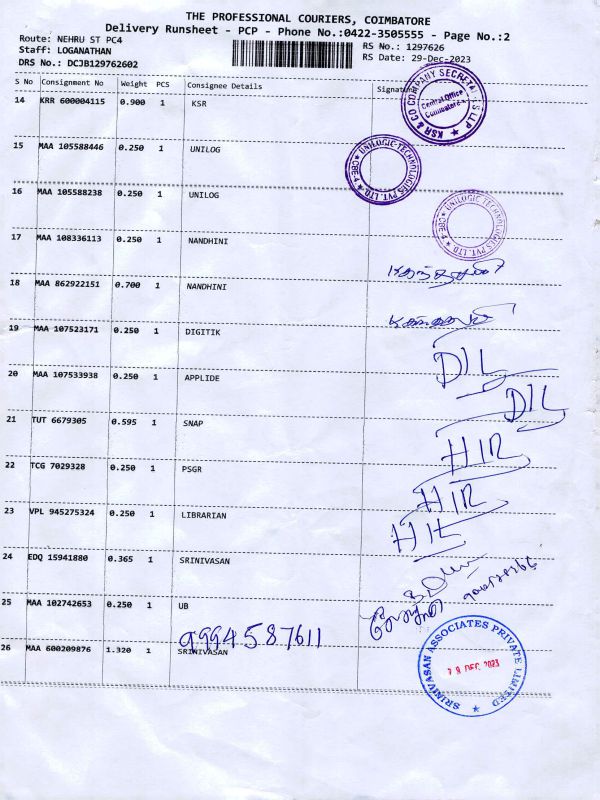 THE PROFESSIONAL COURIERS, COIMBATORE
Delivery Runsheet - PCP - Phone No.:0422-3505555 - Page No.:2
Route: NEHRU ST PC4
Staff: LOGANATHAN
DRS No.: DCJB129762602
RS No.: 1297626
RS Date: 29-Dec-2023
S No Consignment No Weight PCS Consignee Details Signature
14 KRR 600004115 0.900 1 KSR
KSR & CO COMPANY SECRETARIES LLP
Central Office
Coimbatore
15 MAA 105588446 0.250 1 UNILOG
UNILOGIC TECHNOLOGIES PVT. LTD. CBE-4
16 MAA 105588238 0.250 1 UNILOG
UNILOGIC TECHNOLOGIES PVT. LTD. CBE-4
17 MAA 108336113 0.250 1 NANDHINI
18 MAA 862922151 0.700 1 NANDHINI
19 MAA 107523171 0.250 1 DIGITIK
DIL
20 MAA 107533938 0.250 1 APPLIDE
DIL
21 TUT 6679305 0.595 1 SNAP
HIR
22 TCG 7029328 0.250 1 PSGR
HIR
23 VPL 945275324 0.250 1 LIBRARIAN
24 EDQ 15941880 0.365 1 SRINIVASAN
25 MAA 102742653 0.250 1 UB
9994587611
26 MAA 600209876 1.320 1 SRINIVASAN
SRINIVASAN ASSOCIATES PRIVATE LIMITED
DEC 2023